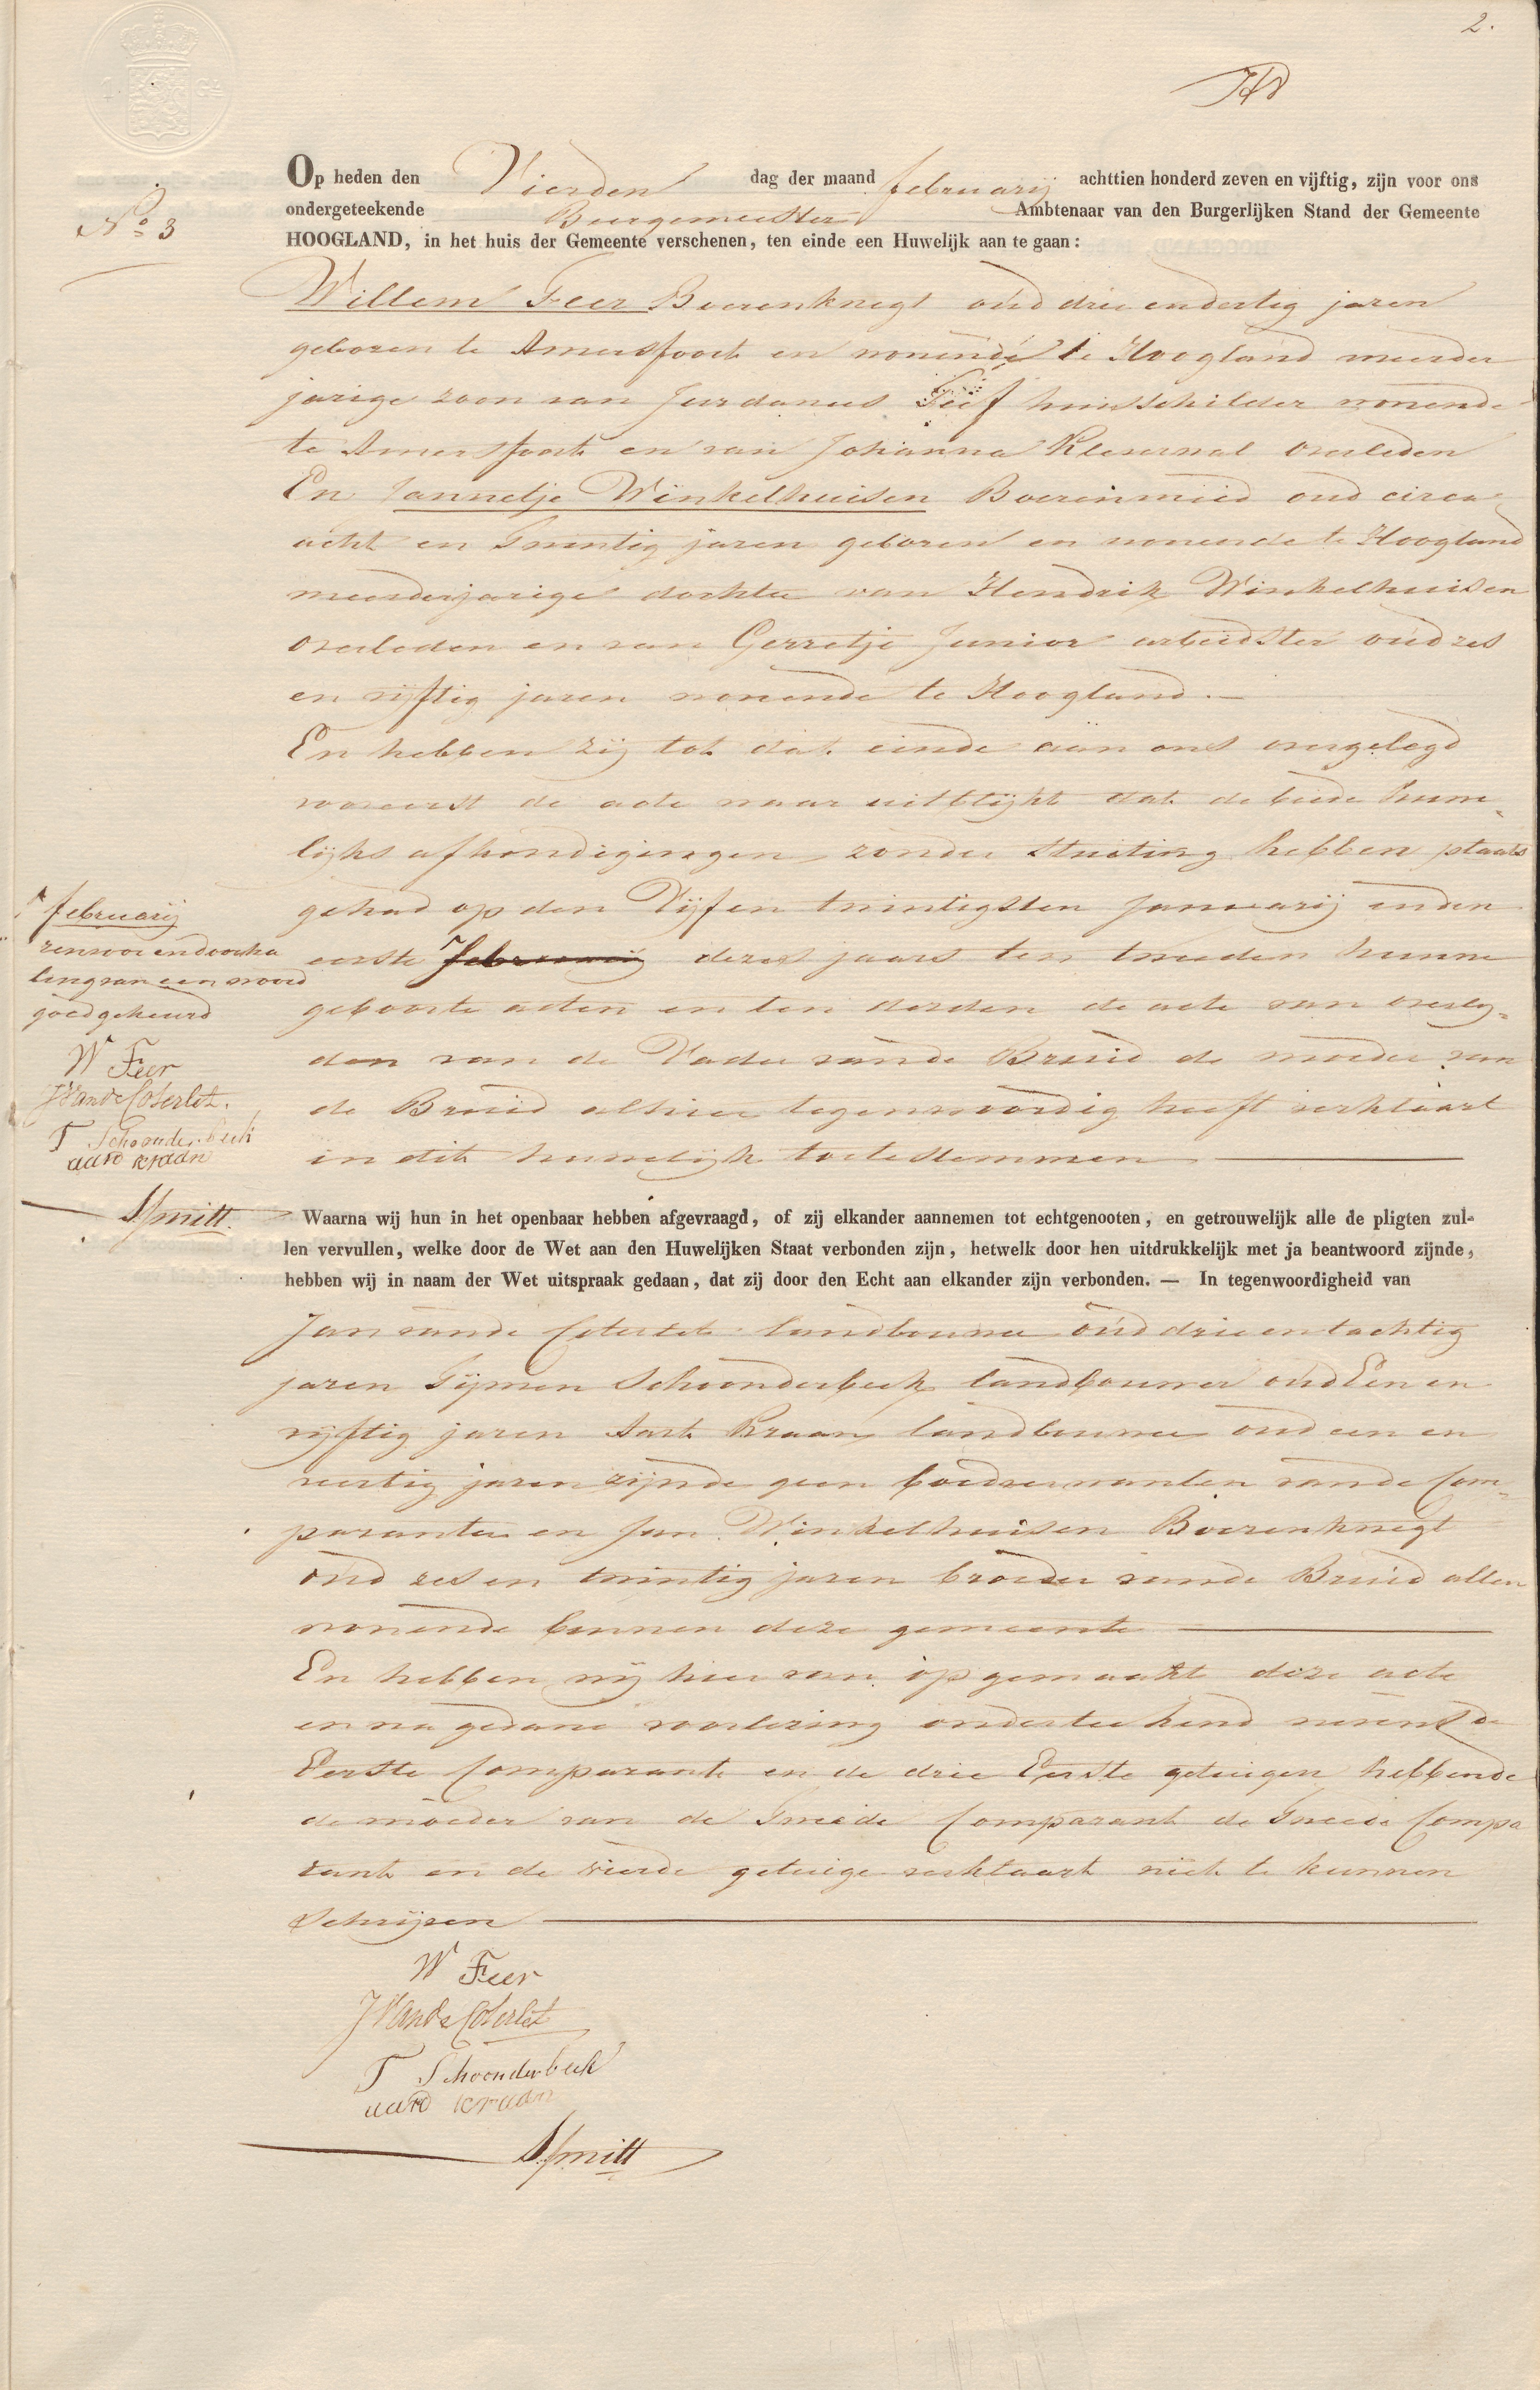 2.
No 3
Op heden den Vierden dag der maand februarij achttien honderd zeven en vijftig, zijn voor ons
ondergeteekende Burgemeester Ambtenaar van den Burgerlijken Stand der Gemeente
HOOGLAND, in het huis der Gemeente verschenen, ten einde een Huwelijk aan te gaan:
Willem Feer Boerenknegt oud drie en dertig jaren
geboren te Amersfoort en wonende te Hoogland meerder
jarige zoon van Jurdanus huisschilder wonende
te Amersfoort en van Johanna overleden
En Jannetje Winkelhuisen Boerinmeid oud circa
acht en Twintig jaren geboren en wonende te Hoogland
meerderjarige dochter van Hendrik Winkelhuisen
overleden en van Gerretje Junior arbeidster oud zes
en vijftig jaren wonende te Hoogland.—
En hebben zij tot dat einde aan ons overgelegd
vooreerst de acte waar uit blijkt dat de beide huwe„
lijks afkondigingen zonder stuiting hebben plaats
gehad op den Vijf en twintigsten Januarij en den
eerste februarij dezes jaars ten tweeden hunne
geboorte acten en ten derden de acte van overly„
den van de Vader van de Bruid de moeder van
de Bruid alhier tegenwoordig heeft verklaart
in dit huwelijk toetestemmen
februarij
renvooi en doorha
ling van een woord
goedgekeurd
W Feer
J Van de Coterlet.
T Schoonderbeek
aard kraan
Smitt.
Waarna wij hun in het openbaar hebben afgevraagd, of zij elkander aannemen tot echtgenooten, en getrouwelijk alle de pligten zul-
len vervullen, welke door de Wet aan den Huwelijken Staat verbonden zijn, hetwelk door hen uitdrukkelijk met ja beantwoord zijnde,
hebben wij in naam der Wet uitspraak gedaan, dat zij door den Echt aan elkander zijn verbonden. — In tegenwoordigheid van
Jan van de Coterlet landbouwer oud drie en tachtig
jaren Tijmen Schoonderbeek landbouwer oud Een en
vijftig jaren Aart Kraan landbouwer oud een en
veertig jaren zijnde geen bloedverwanten van de Com„
paranten en Jan Winkelhuisen Boerenknegt
oud zes en twintig jaren broeder van de Bruid allen
wonende binnen deze gemeente
En hebben wij hier van opgemaakt deze acte
en na gedane voorlezing onderteekend nevens de
Eerste Comparant en de drie Eerste getuigen hebbende
de moeder van de Tweede Comparant de Tweede Compa
rant en de vierde getuige verklaart niet te kunnen
Schrijven
W Feer
J Van de Coterlet
T Schoonderbeek
aard kraan
Smitt